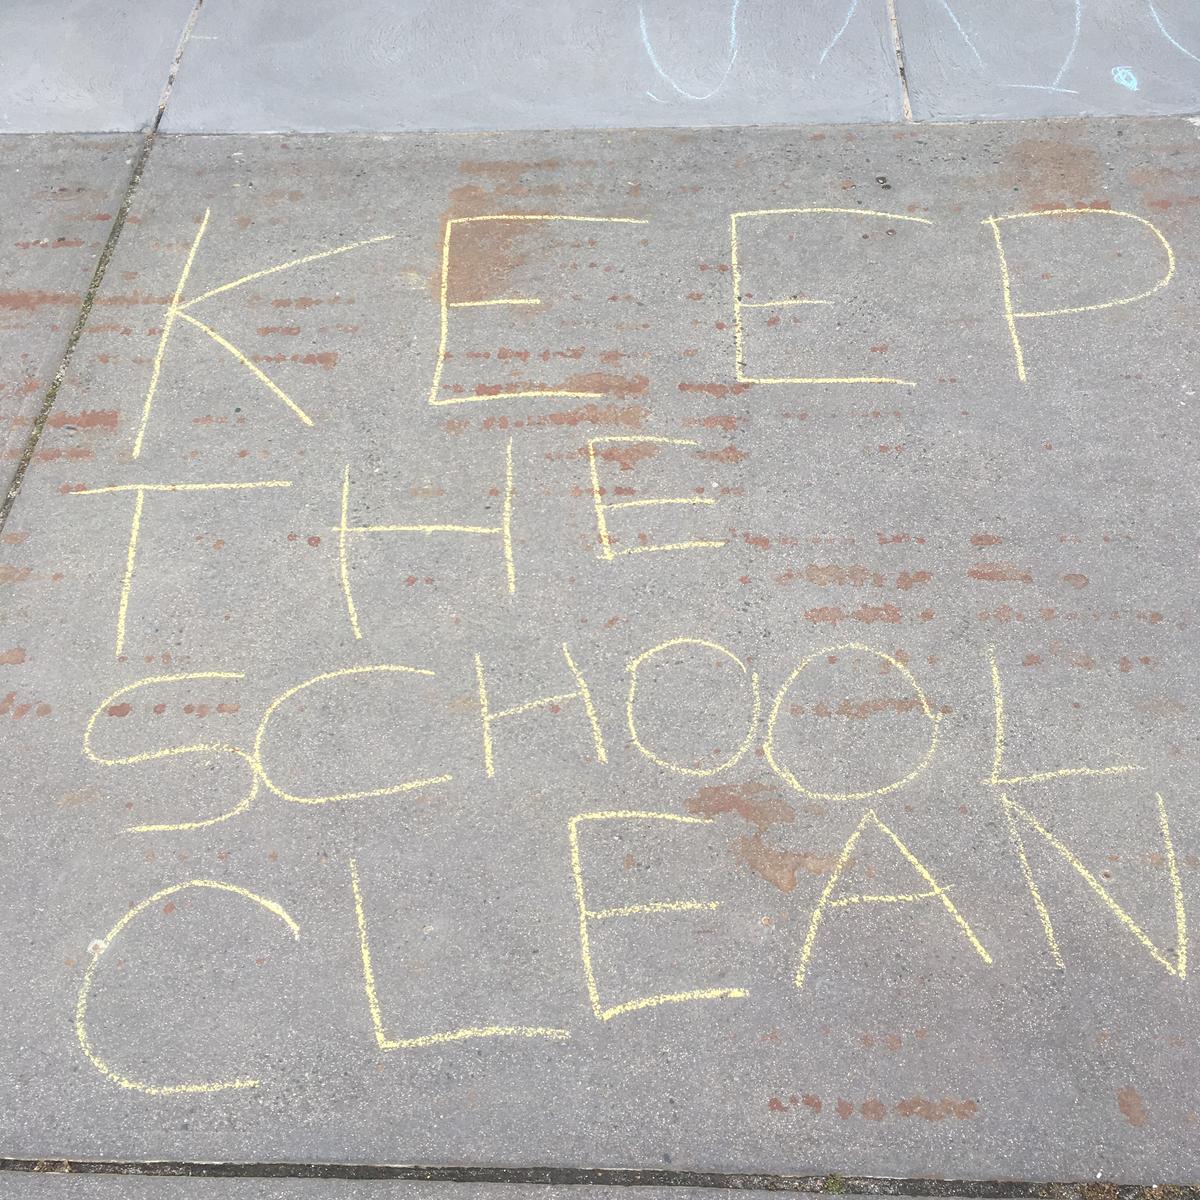 KEEP
THE
SCHOOL
CLEAN